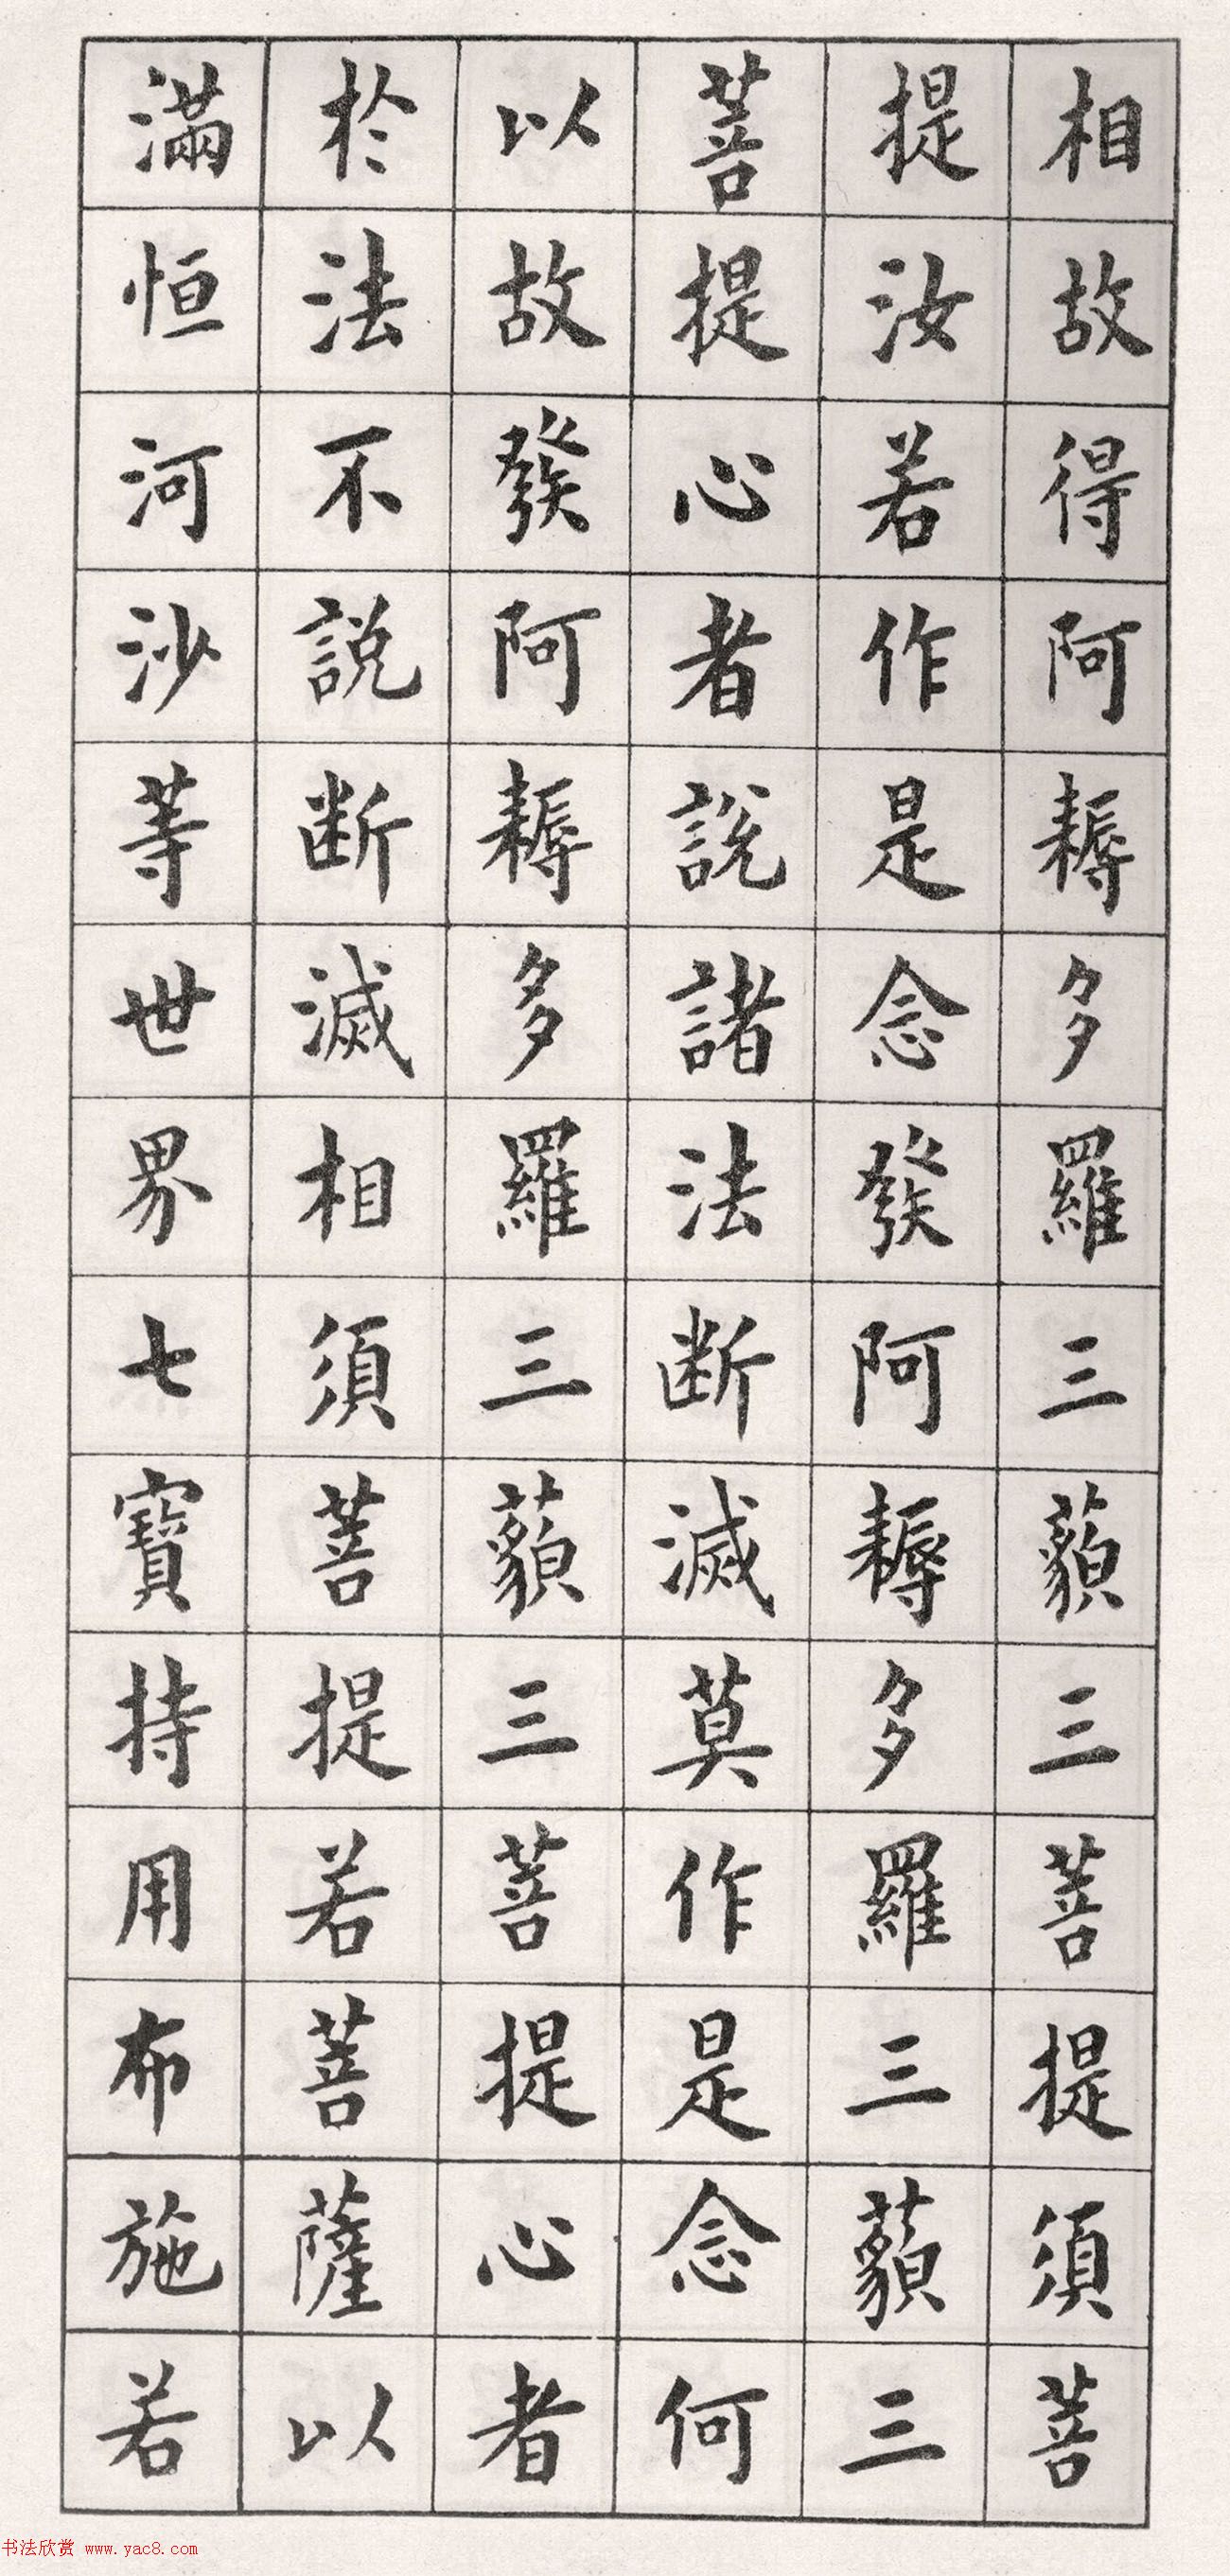 相故得阿耨多羅三藐三菩提須菩
提汝若作是念發阿耨多羅三藐三
菩提心者說諸法断滅莫作是念何
以故發阿耨多羅三藐三菩提心者
於法不說断滅相須菩提若菩薩以
滿恒河沙等世界七寶持用布施若
书法欣赏 www.yac8.com